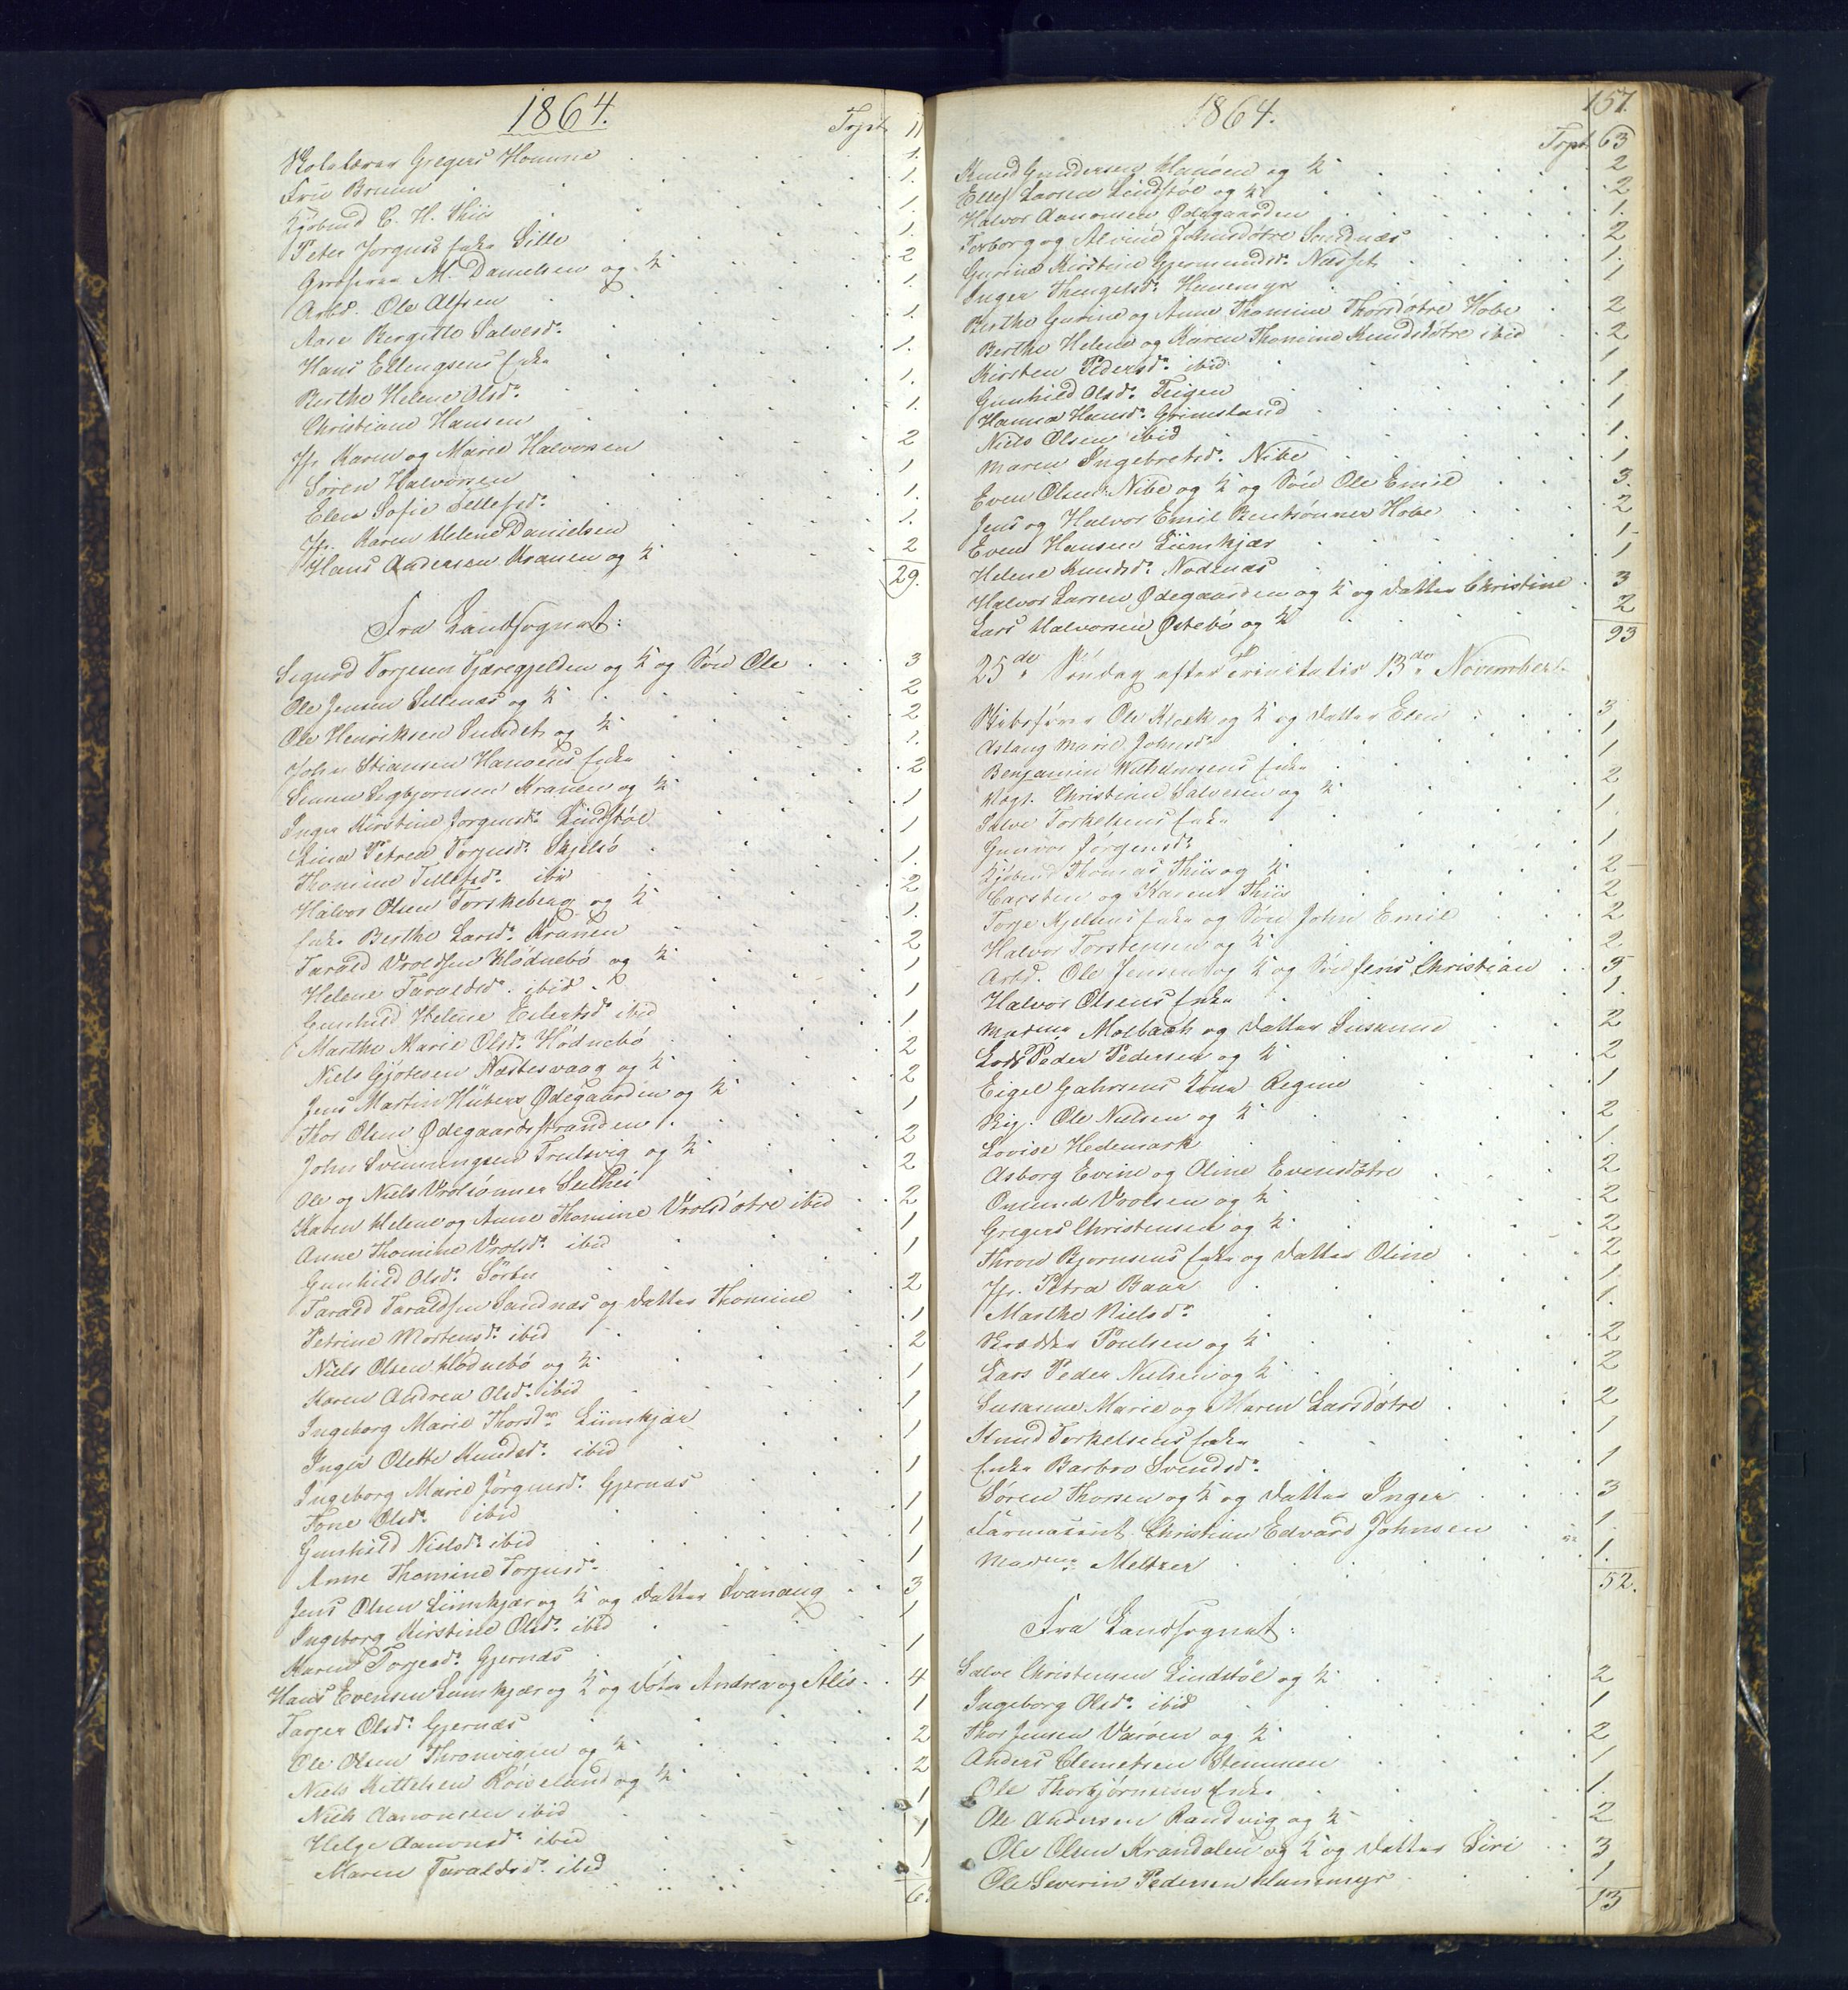 1864.
Trpt. 11
Skolelærer Gregers Homme 1.
Frü Bruun 1.
Kjöbmd C. H. Thiis 1.
Peter Jorgens Enke Sille 1.
Grosserer M. Danielsen og K. 2
Arbd. Ole Alfsen 1.
Aase Bergitte Salvesd. 1.
Hans Ellengsens Enke 1.
Berthe Helene Olsd. 1.
Christiane Hansen 1.
Jfr. Karen og Marie Halvorsen 2
Sören Halvorsen 1
Elen Sofie Tellefsd. 1.
Jfr. Karen Helene Danielsen 1.
Hans Andersen Kranen og K. 2
29.
Fra Landsognet:
Sigurd Torjesen Tjæregjelden og K. og Sön Ole 3
Ole Jensen Sellenæs og K. 2
Ole Henriksen Sundet og K. 2
John Stiansen Hanöens Enke 1.
Simen Sigbjornsen Kranen og K. 2
Inger Kirstine Jorgensd. Lindstöl 1
Lina Petrea Torjusd. Skjelsö 1
Thomine Tellefsd. ibid 1.
Halvor Olsen Torskeberg og K. 2
Enke Berthe Larsd. Kranen 1.
Tarald Vroldsen Hödnebö og K. 2
Helene Taraldsd. ibid. 1
Gunhild Helene Eilertsd. ibid 1
Marthe Marie Olsd. Hödnebö 1
Niels Gjotesen Næstesvaag og K. 2
Jens Martin Hübert Ødegaarden og K. 2
Thor Olsen Ødegaardsstranden 1
John Svenningsen Trulsvig og K. 2
Ole og Niels Vrolsönner Seilhei 2
Karen Helene og Anne Thomine Vrolsdötre ibid 2
Anne Thomine Vrolsd. ibid 1
Gunhild Olsd. Sörbu 1
Tarald Taraldsen Sandnæs og Datter Thomine 2
Petrine Mortensd. ibid 1
Niels Olsen Hödnebö og K. 2
Karen Andrea Olsd. ibid 1
Ingeborg Marie Thorsd. Liimkjær 1
Inger Olette Knudsd. ibid 1
Ingeborg Marie Jörgensd. Gjernæs 1
Tone Olsd. ibid 1
Gunhild Nielsd. ibid 1
Anne Thomine Torjusd. 1
Jens Olsen Liimkjær og K. og Datter Svanaug 3
Ingeborg Kirstine Olsd. ibid 1
Karen Torjesd. Gjernæs 1
Hans Evensen Liimkjær og K. og Dötre Andrea og Alis 4
Torjer Olsd. Gjernæs 1
Ole Olsen Thronvigen og K. 2
Niels Kittelsen Röiseland og K. 2
Niels Aanonsen ibid 1
Helge Aanonsd. ibid 1
Maren Taraldsd. ibid 1
1864.
157.
Trpt. 63
Knud Gundersen Hanöen og K. 2
Ellef Larsen Lindstöl og K. 2
Halvor Aanonsen Ødegaarden 1.
Torborg og Alvine Johnsdötre Sandnæs 2
Gurine Kirstine Gjermundsd. Næsset 1.
Inger Thengelsd. Hummyr 1
Berthe Gurine og Anne Thomine Thorsdötre Hobe 2
Berthe Helene og Karen Thomine Knudsdötre ibid 2
Kirsten Pedersd. ibid 1
Gunhild Olsd. Teigen 1
Hanna Hansd. Grimsland 1
Niels Olsen ibid 1.
Maren Ingebretsd. Nibe 1
Even Olsen Nibe og K. og Sön Ole Emil 3.
Jens og Halvor Emil Bentsönner Hobe 2
Even Hansen Liimkjær 1.
Helene Knudsd. Nodenæs 1
Halvor Larsen Ødegaarden og K. og Datter Christine 3
Lars Halvorsen Östebö og K. 2
93
25de Söndag efter Trinitatis 13de November.
Bitsförer Ole Kloek og K. og Datter Elen 3
Aslaug Marie Johnsd. 1
Benjamin Wilhelmsens Enke 1
Vægt. Christian Salvesen og K. 2
Salve Torkelsens Enke 1.
Gunvor Jörgensd. 1
Kjöbmd Thomas Thiis og K. 2
Carsten og Karen Thiis 2
Torje Kjelsens Enke og Sön John Emil 2
Halvor Torstensen og K. 2
Arbd. Ole Jensen og K. og Sön Jens Christian 3
Halvor Olsens Enke 1.
Madme Molbach og Datter Susanne 2
Lods Peder Pedersen og K. 2
Eigel Gahrsens Kone Regine 1
Rig. Ole Nielsen og K. 2
Lovise Hedemark 1.
Asborg Evine og Oline Evensdötre 2
Omund Vrolsen og K. 2
Gregers Christensen og K. 2
Thron Bjornsens Enke og Datter Oline 2
Jfr. Petra Baar 1
Marthe Nielsd. 1.
Skrædder Poulsen og K. 2
Lars Peder Nielsen og K. 2
Susanne Marie og Maren Larsdötre 2
Knud Torkelsens Enke 1
Enke Barbro Svendsd. 1
Sören Thorsen og K. og Datter Inger 3
Farmaceut Christian Edvard Johnsen 1.
Madme Meltzer 1.
52.
Fra Landsognet:
Salve Christensen Lindstöl og K. 2
Ingeborg Olsd. ibid 1
Thor Jensen Varöen og K. 2
Anders Clemetsen Stemmen 1
Ole Thorbjörnsens Enke 1.
Ole Andersen Randvig og K. 2
Ole Olsen Krandalen og K. og Datter Siri 3
Ole Severin Pedersen Hummyr 1
13